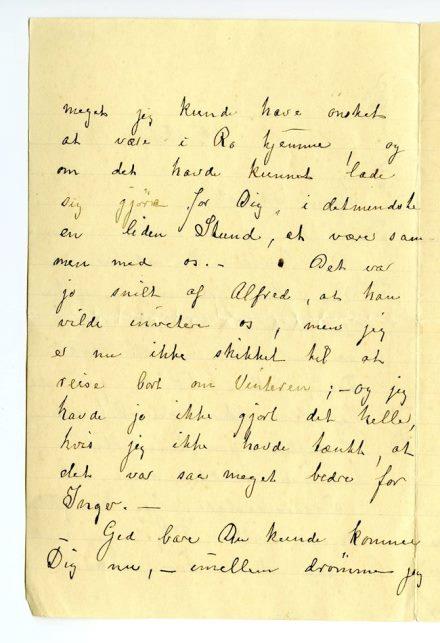 meget jeg kunde have ønsket
at være i Ro hjemme, og
om det havde kunnet lade
sig gjöre for Dig, i detmendste
en liden Stund, at være sam-
men med os. - Det var
jo snilt af Alfred, at han
vilde invetere os, men jeg
er nu ikke skikket til at
reise bort om Vinteren; - og jeg
havde jo ikke gjort det heller,
hvis jeg ikke havde tænkt, at
det var saa meget bedre for
Inger. -
Gid bare Du kunde komme
Dig nu, - imellem drömme jeg